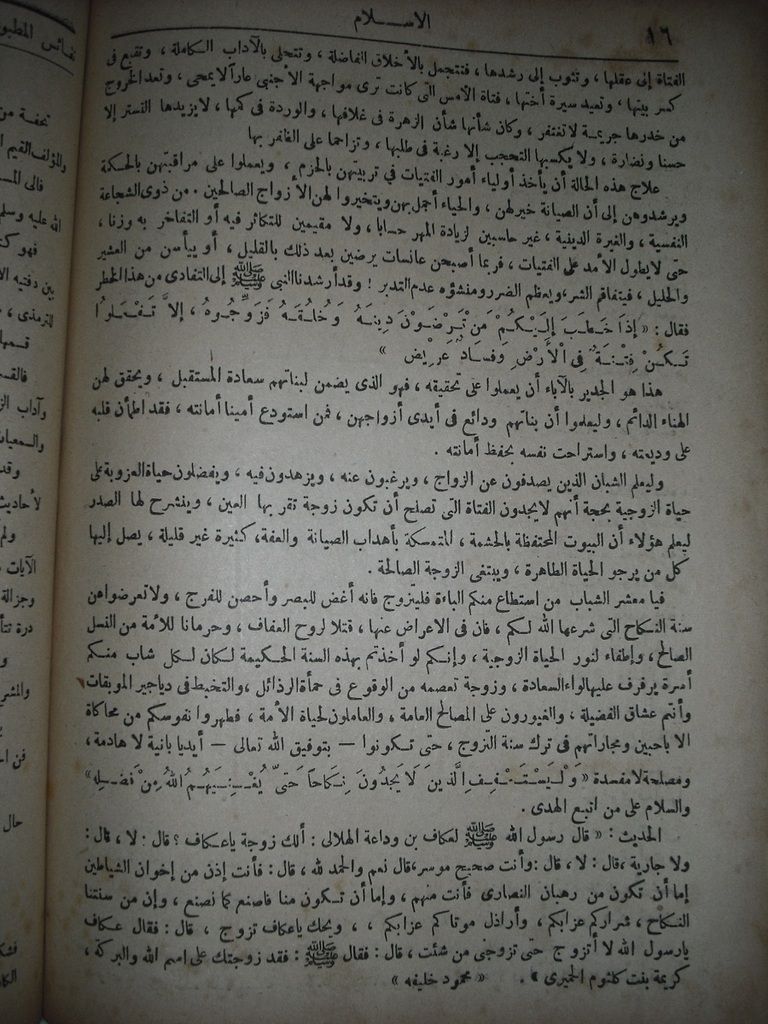 ١٦
الاسلام
الفتاة إلى عقلها ، وتثوب إلى رشدها ، فتتجمل بالأخلاق الفاضلة ، وتتحلى بالآداب الكاملة ، وتقبع فى
كسر بيتها ، وتعيد سيرة أختها ، فتاة الأمس التى كانت ترى مواجهة الأجنبى عاراً لا يمحى ، وتعد الخروج
من خدرها جريمة لا تغتفر ، وكان شأنها شأن الزهرة فى غلافها ، والوردة فى كمها ، لا يزيدها التستر إلا
حسنا ونضارة ، ولا يكسبها التحجب إلا رغبة فى طلبها ، وتزاحما على الظفر بها
علاج هذه الحالة أن يأخذ أولياء أمور الفتيات في تربيتهن بالحزم ، ويعملوا على مراقبتهن بالحكمة
ويرشدوهن إلى أن الصيانة خير لهن ، والحياء أجمل بهن ويتخيروا لهن الأزواج الصالحين . . من ذوى الشجاعة
النفسية ، والغيرة الدينية ، غير حاسبين لزيادة المهر حسابا ، ولا مقيمين للتكاثر فيه أو التفاخر به وزنا ،
حتى لا يطول الأمد على الفتيات ، فربما أصبحن عانسات يرضين بعد ذلك بالقليل ، أو ييأسن من العشير
والحليل ، فيتفاقم الشر ، ويعظم الضرر ومنشؤه عدم التدبر ! وقد أرشدنا النبى ﷺ إلى التفادى من هذا الخطر
فقال : « إذَا خَطَبَ إلَيْكُمْ مَنْ تَرْضَوْنَ دِينَهُ وَخُلُقَهُ فَزَوِّجُوهُ ، إلاَّ تَفْعَلُوا
تَكُنْ فِتْنَةٌ فِى الْأَرْضِ وَفَسَادٌ عَرِيْضٌ »
هذا هو الجدير بالآباء أن يعملوا على تحقيقه ، فهو الذى يضمن لبناتهم سعادة المستقبل ، ويحقق لهن
الهناء الدائم ، وليعلموا أن بناتهم ودائع فى أيدى أزواجهن ، فمن استودع أمينا أمانته ، فقد اطمأن قلبه
على وديعته ، واستراحت نفسه بحفظ أمانته .
وليعلم الشبان الذين يصدفون عن الزواج ، ويرغبون عنه ، ويزهدون فيه ، ويفضلون حياة العزوبة على
حياة الزوجية بحجة أنهم لا يجدون الفتاة التى تصلح أن تكون زوجة تقر بها العين ، وينشرح لها الصدر
ليعلم هؤلاء أن البيوت المحتفظة بالحشمة ، المتمسكة بأهداب الصيانة والعفة ، كثيرة غير قليلة ، يصل إليها
كل من يرجو الحياة الطاهرة ، ويبتغى الزوجة الصالحة .
فيا معشر الشباب من استطاع منكم الباءة فليتزوج فانه أغض للبصر وأحصن للفرج ، ولا تعرضوا عن
سنة النكاح التى شرعها الله لكم ، فان فى الاعراض عنها ، قتلا لروح العفاف ، وحرمانا للأمة من النسل
الصالح ، وإطفاء لنور الحياة الزوجية ، وإنكم لو أخذتم بهذه السنة الحكيمة لكان لكل شاب منكم
أسرة يرفرف عليها لواء السعادة ، وزوجة تعصمه من الوقوع فى حمأة الرذائل ، والتخبط فى دياجير الموبقات
وأنتم عشاق الفضيلة ، والغيورون على المصالح العامة ، والعاملون لحياة الأمة ، فطهروا نفوسكم من محاكاة
الاباحيين ومجاراتهم فى ترك سنة التزوج ، حتى تكونوا — بتوفيق الله تعالى — أيديا بانية لا هادمة ،
ومصلحة لا مفسدة « وَلْيَسْتَعْفِفِ الَّذِينَ لَا يَجِدُونَ نِكَاحًا حَتَّى يُغْنِيَهُمُ اللهُ مِنْ فَضْلِهِ »
والسلام على من اتبع الهدى .
الحديث : « قال رسول الله ﷺ لعكاف بن وداعة الهلالى : ألك زوجة ياعكاف ؟ قال : لا ، قال :
ولا جارية ، قال : لا ، قال : وأنت صحيح موسر ، قال نعم والحمد لله ، قال : فأنت إذن من إخوان الشياطين
إما أن تكون من رهبان النصارى فأنت منهم ، وإما أن تكون منا فاصنع كما نصنع ، وإن من سنتنا
النكاح ، شراركم عزابكم ، وأراذل موتاكم عزابكم ، ، ويحك ياعكاف تزوج ، قال : فقال عكاف
يارسول الله لا أتزوج حتى تزوجنى من شئت ، قال : فقال ﷺ : فقد زوجتك على اسم الله والبركة ،
كريمة بنت كلثوم الحميرى » . « محمود خليفه »